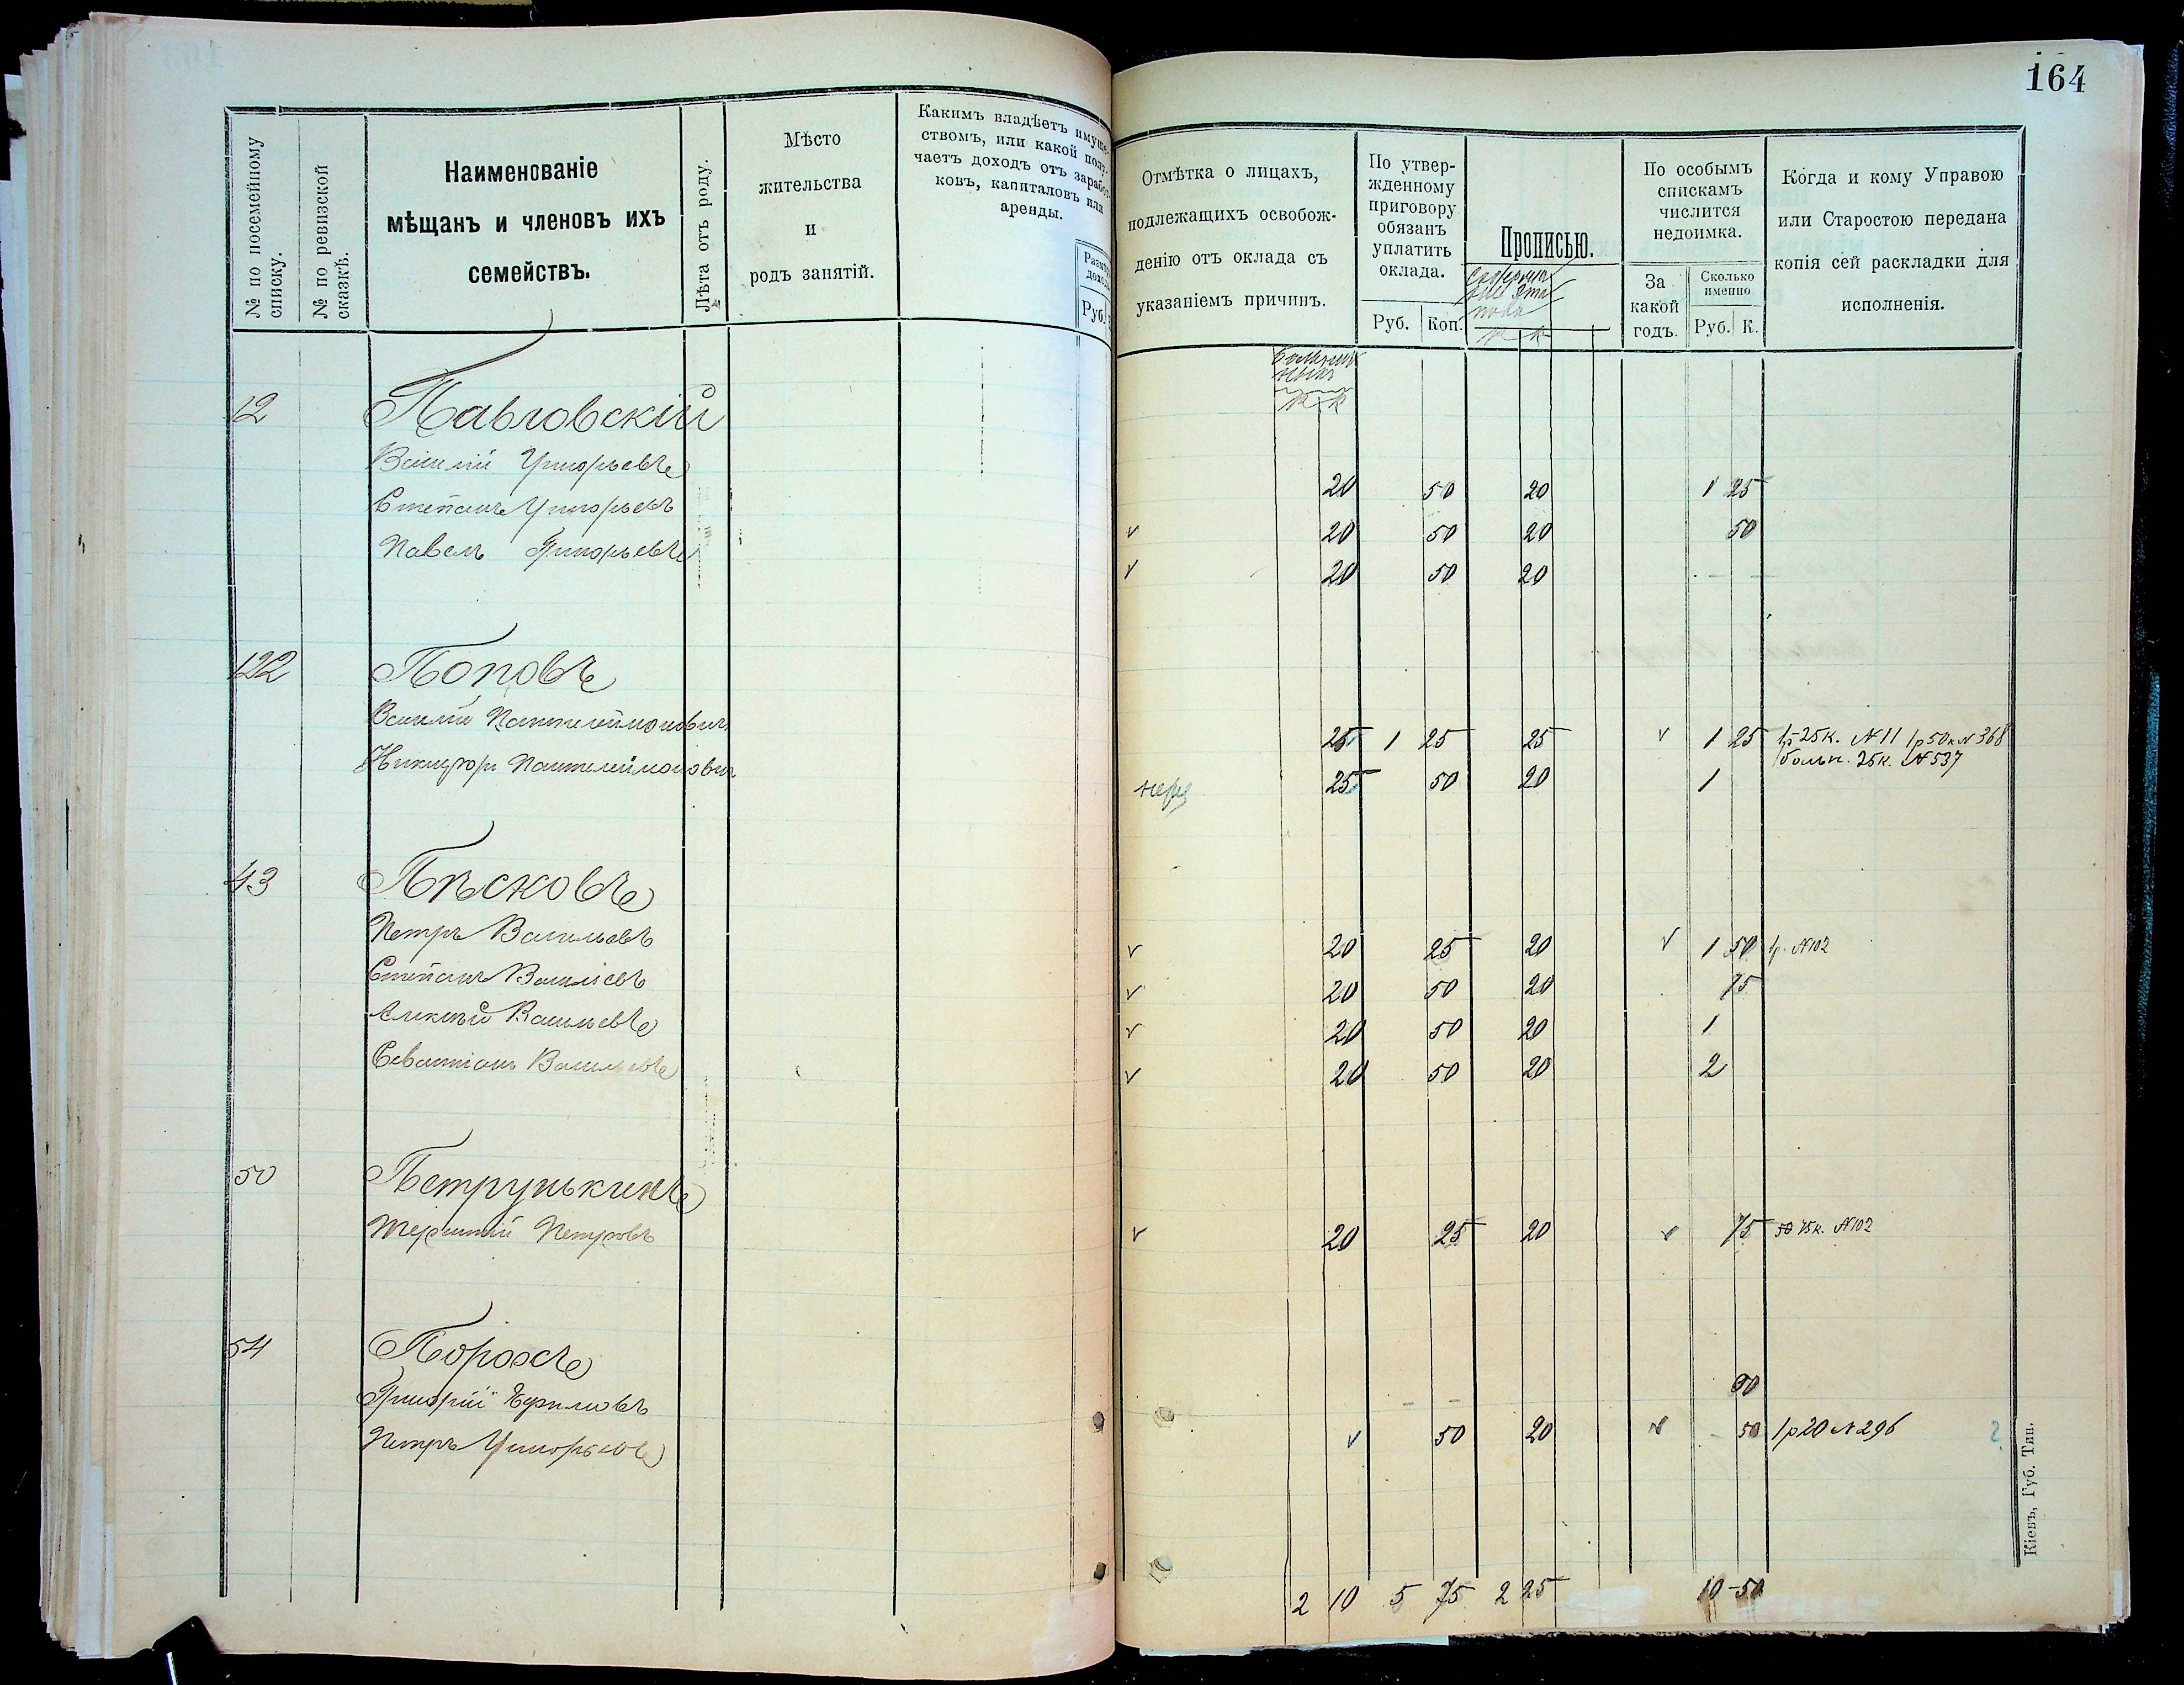 164
№ по посемейному списку.
№ по ревизской сказкѣ.
Наименованіе
мѣщанъ и членовъ ихъ
семействъ.
Лѣта отъ роду.
Мѣсто
жительства
и
родъ занятій.
Какимъ владѣетъ имуще-
ствомъ, или какой полу-
чаетъ доходъ отъ заработ-
ковъ, капиталовъ или
аренды.
Руб.
Отмѣтка о лицахъ,
подлежащихъ освобож-
денію отъ оклада съ
указаніемъ причинъ.
По утвер-
жденному
приговору
обязанъ
уплатить
оклада.
Руб. Коп.
Прописью.
По особымъ
спискамъ
числится
недоимка.
За
какой
годъ.
Сколько
именно
Руб. К.
Когда и кому Управою
или Старостою передана
копія сей раскладки для
исполненія.
12 Павловскій
Василій Григорьевъ 20 50 20 1 25
Степанъ Григорьевъ 20 50 20 50
Павелъ Григорьевъ 20 50 20
122 Поповъ
Василій Пантелеймонович 25 1 25 25 1 25 1р 25к. №11 1р50к №368
больн. 25к. №537
Никифоръ Пантелеймонович 25 50 20 1
43 Пѣсковъ
Петръ Васильевъ 20 25 20 1 50 1р. №102
Степанъ Васильевъ 20 50 20 75
Алексѣй Васильевъ 20 50 20 1
Севастіанъ Васильевъ 20 50 20 2
50 Петрунькинъ
Терентій Петровъ 20 25 20 75 50 75к. №102
54 Порохъ
Григорій Ефимовъ
Петръ Григорьевъ 50 20 50 1р20 №296
2 10 5 75 2 25 10-50
Кіевъ, Губ. Тип.